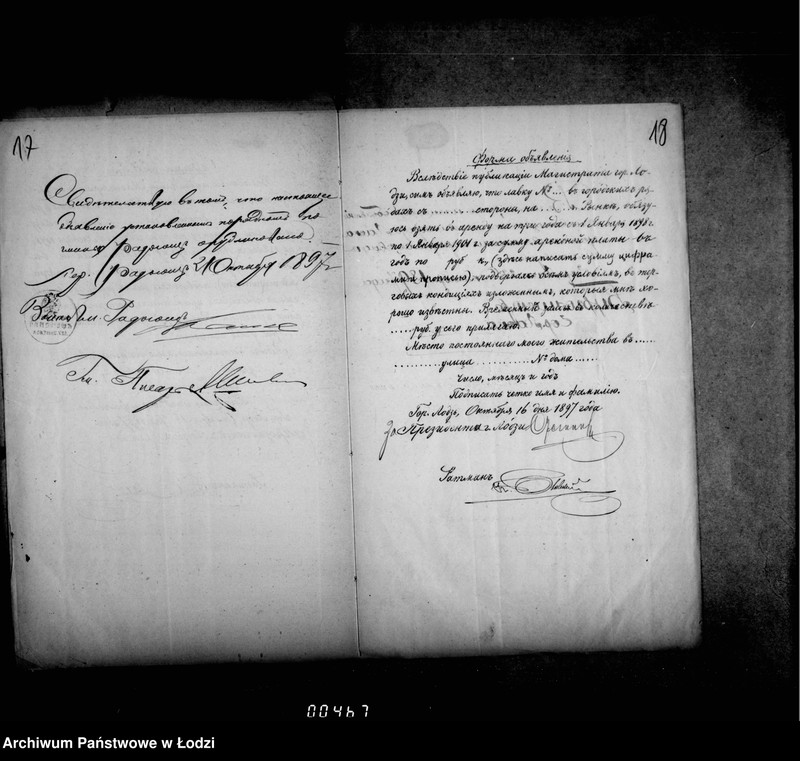 17
Свидѣтельствую въ томъ, что настоящее
объявленіе установленнымъ порядкомъ въ
гминѣ Радогощъ опубликовано.
Гор. Радогощъ 21 Октября 1897 г.
Войтъ гм. Радогощъ
Гм. Писарь
18
Форма объявленія
Вслѣдствіе публикаціи Магистрата гор. Ло-
дзи, симъ объявляю, что лавку №... въ городскихъ ря-
дахъ съ ......... стороны, на ..... Рынкѣ, обязу-
юсь взять въ аренду на три года съ 1 Января 1898 г.
по 1 Января 1901 г. за сумму арендной платы въ
годъ по руб. к. (здѣсь написать сумму цифра-
ми и прописью), подвергаясь всѣмъ условіямъ, въ тор-
говыхъ кондиціяхъ изложеннымъ, которыя мнѣ хо-
рошо извѣстны. Временный залогъ въ количествѣ
..... руб. у сего прилагаю.
Мѣсто постояннаго моего жительства въ .....
......... улица ......... № дома .....
Число, мѣсяцъ и годъ
Подписать четко имя и фамилію.
Гор. Лодзь, Октября 16 дня 1897 года
За Президента г. Лодзи
Ратманъ
00467
Archiwum Państwowe w Łodzi